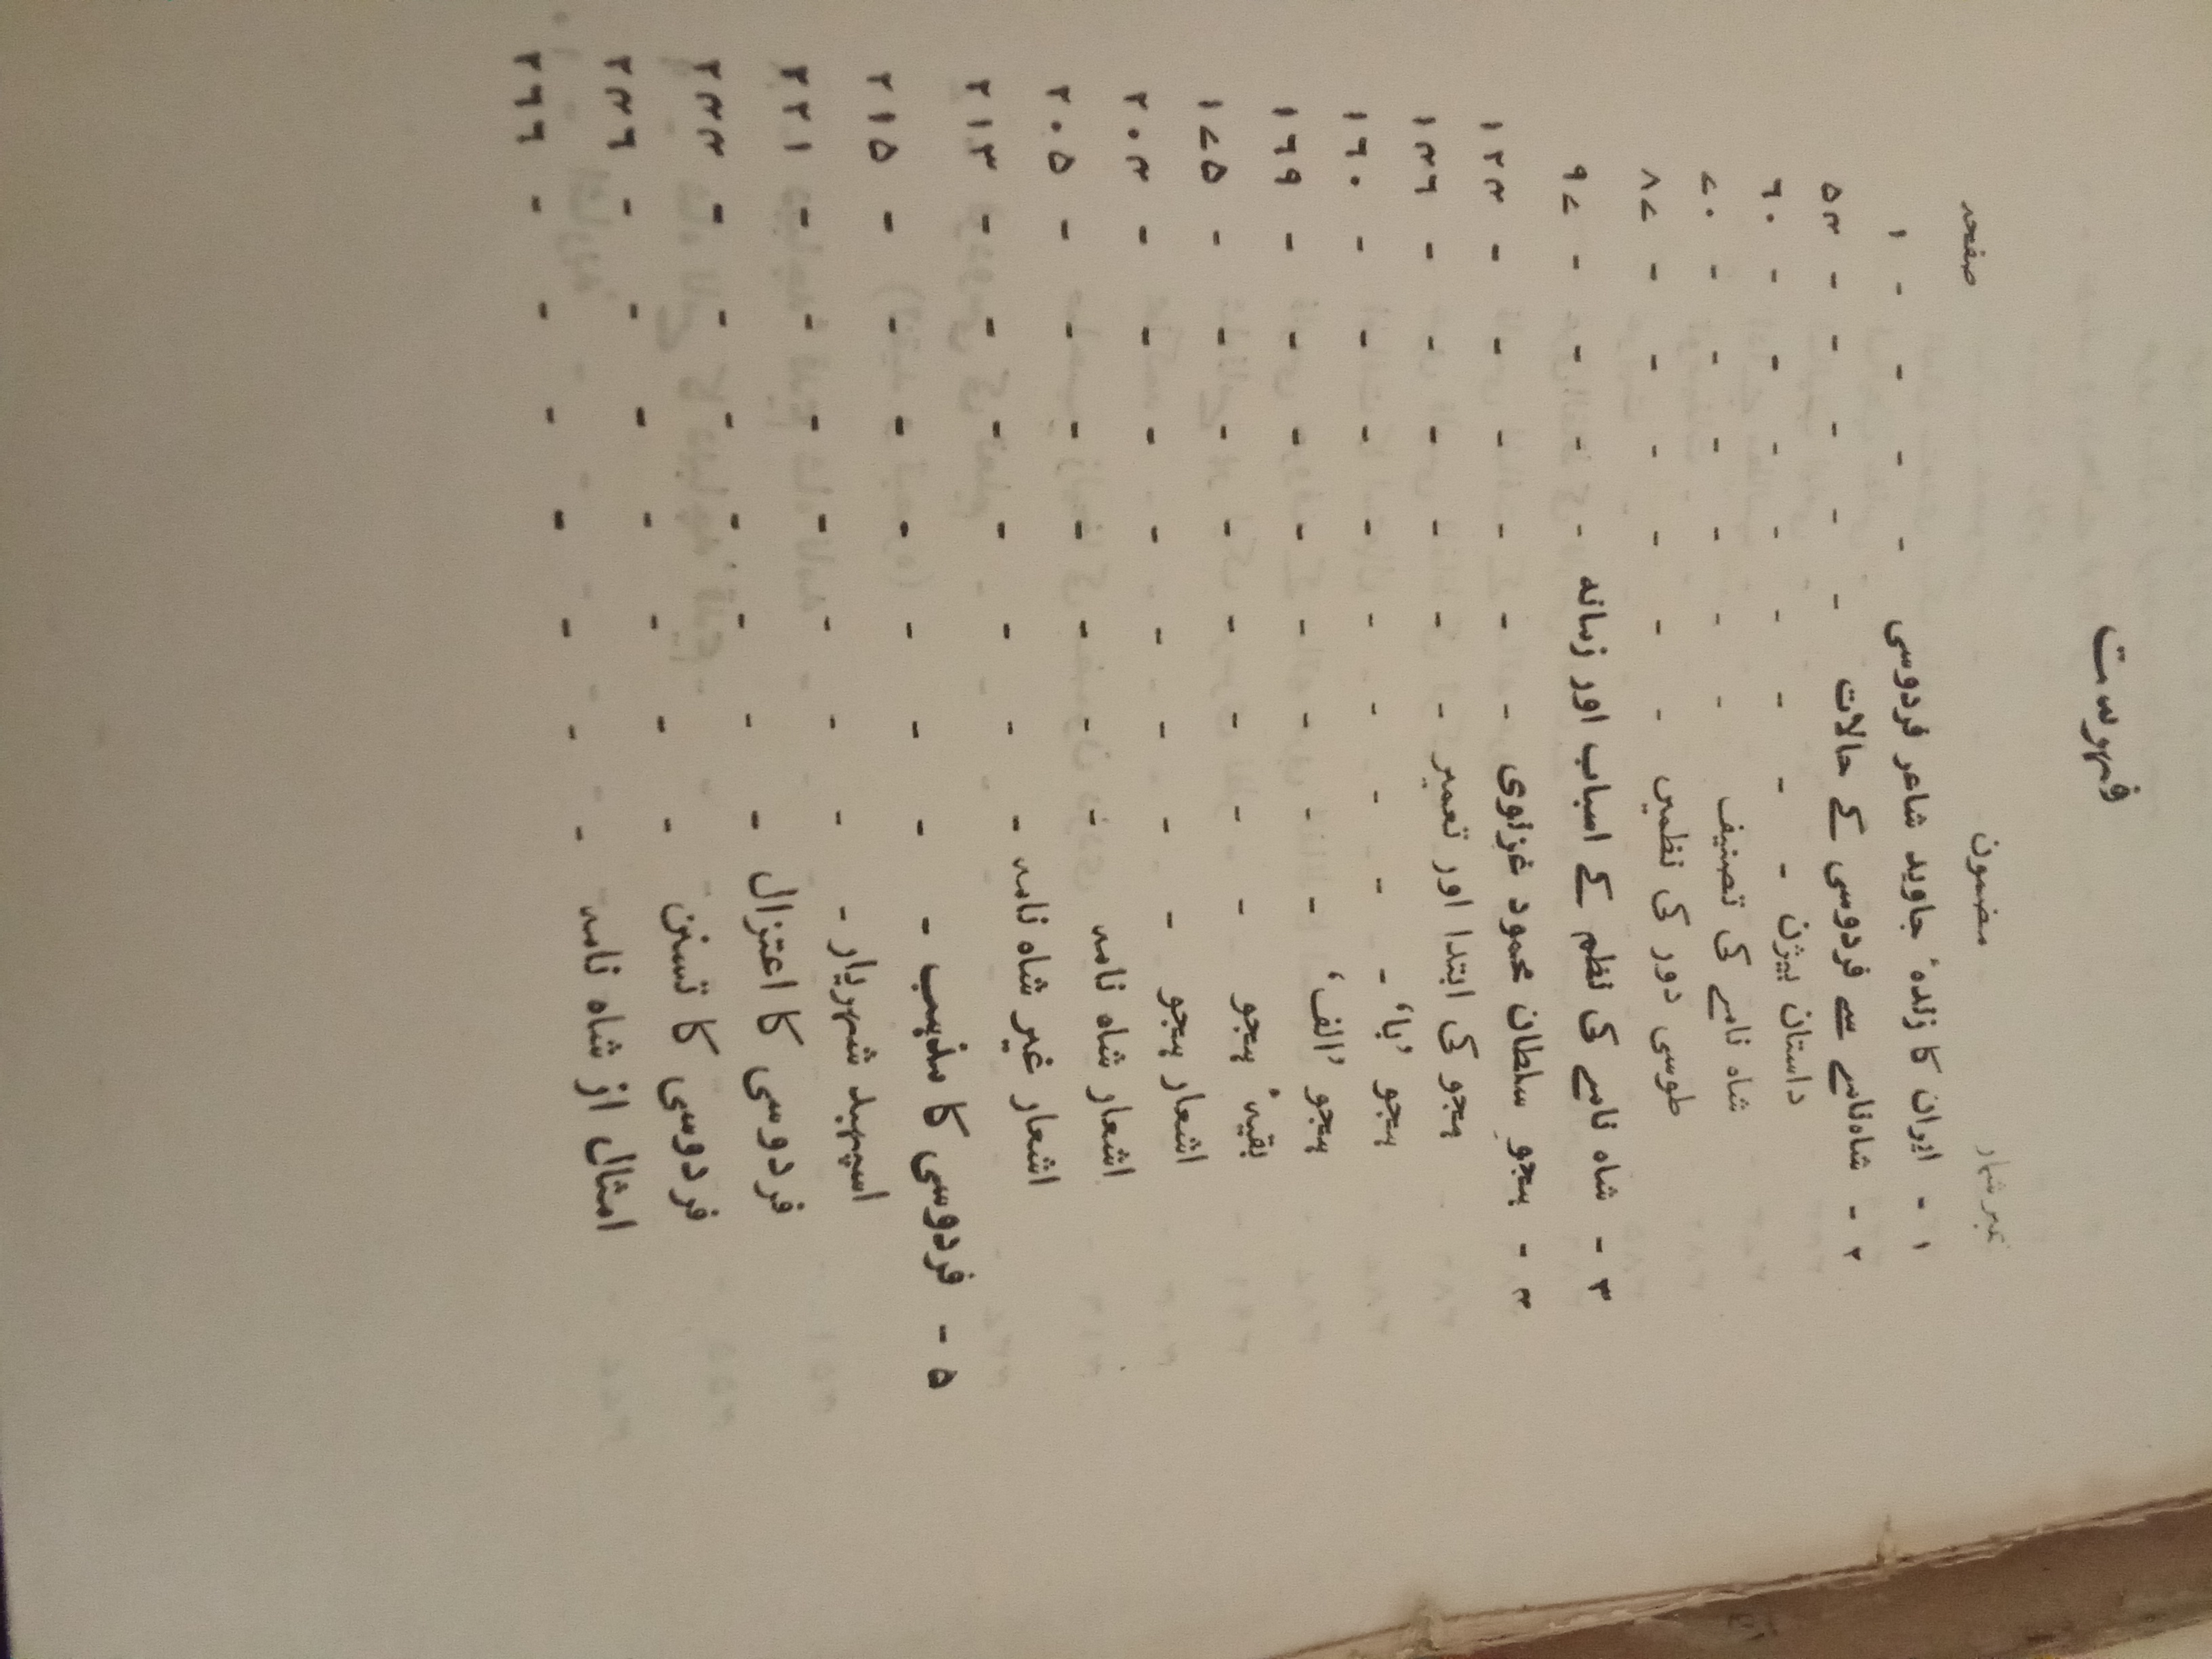 فہرست
نمبر شمار مضمون صفحہ
۱ - ایران کا زندۂ جاوید شاعر فردوسی - - - - ۱
۲ - شاہنامے سے فردوسی کے حالات - - - - - ۵۴
داستان بیژن - - - - - - - - ۶۰
شاہ نامے کی تصنیف - - - - - - ۷۰
طوسی دور کی نظمیں - - - - - - ۸۷
۳ - شاہ نامے کی نظم کے اسباب اور زمانہ - - - - ۹۷
۴ - ہجو سلطان محمود غزنوی - - - - - - ۱۲۴
ہجو کی ابتدا اور تعمیر - - - - - - ۱۴۶
ہجو ’با‘ - - - - - - - - - ۱۶۰
ہجو ’الف‘ - - - - - - - - ۱۶۹
بقیۂ ہجو - - - - - - - - ۱۷۵
اشعار ہجو - - - - - - - - ۲۰۴
اشعار شاہ نامہ - - - - - - - ۲۰۵
اشعار غیر شاہ نامہ - - - - - - - ۲۱۳
۵ - فردوسی کا مذہب - - - - - - - - ۲۱۵
اسپہبد شہریار - - - - - - - - ۲۲۱
فردوسی کا اعتزال - - - - - - - ۲۳۴
فردوسی کا تسنن - - - - - - - ۲۴۶
امثال از شاہ نامہ - - - - - - - ۲۶۶